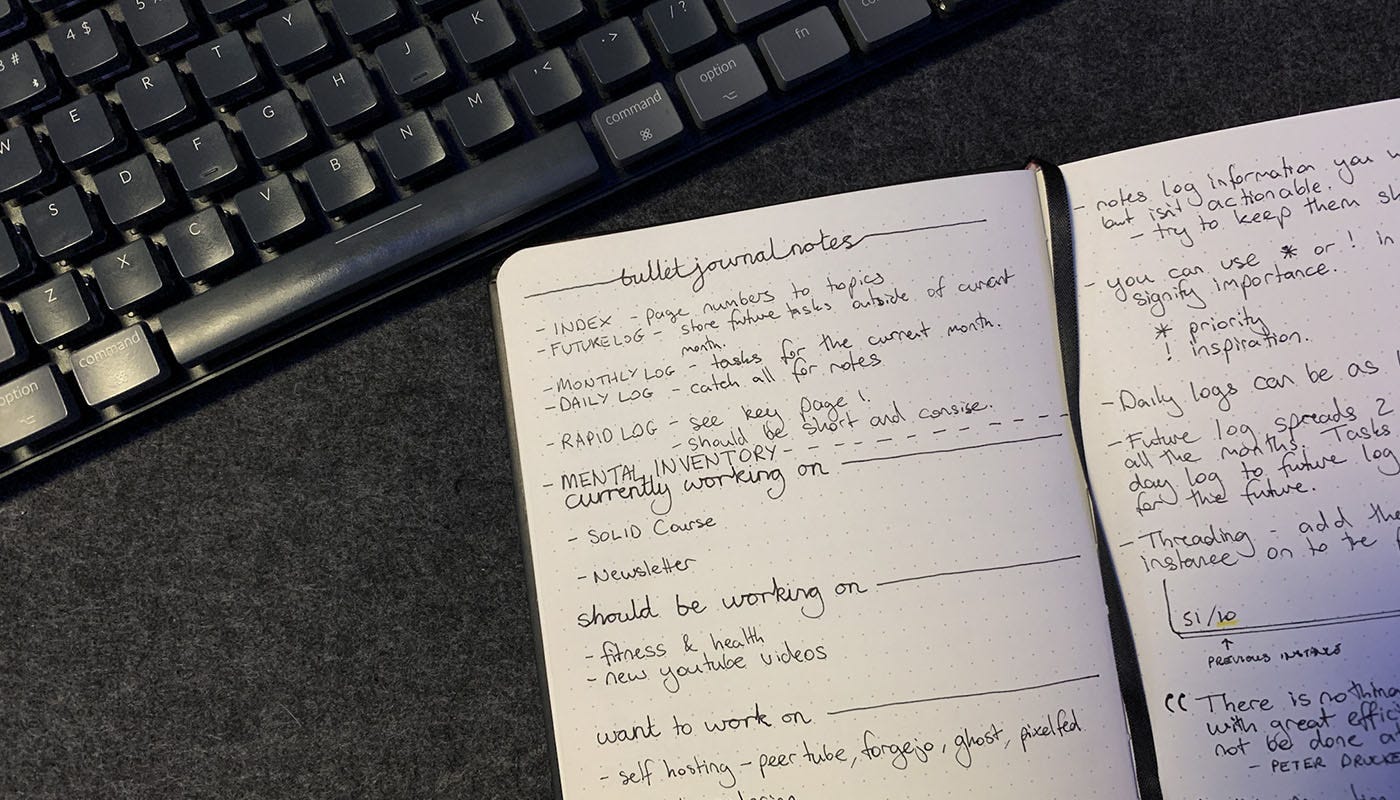 # 3
*
4 $
5 %
Y
K
> .
/ ?
fn
T
J
< ,
option
E
R
H
M
command
⌘
W
G
N
F
B
D
V
S
C
X
Z
command
option
bullet journal notes
- INDEX - page numbers to topics
- FUTURE LOG - store future tasks outside of current
month.
- MONTHLY LOG - tasks for the current month.
- DAILY LOG - catch all for notes.
- RAPID LOG - see key page 1.
- should be short and consise.
- MENTAL INVENTORY
currently working on
- SOLID Course
- Newsletter
should be working on
- fitness & health
- new youtube videos
want to work on
- self hosting - peer tube, forgejo, ghost, pixelfed
- notes log information you
but isn't actionable.
- try to keep them
- you can use * or ! in
signify importance.
* priority
! inspiration.
- Daily logs can be as
- Future log spreads 2
all the months. Tasks
day log to future log
for the future.
- Threading - add the
instance on to the
51/10
↑
PREVIOUS INSTANCE
“ There is nothing
with great
not be done
- PETER